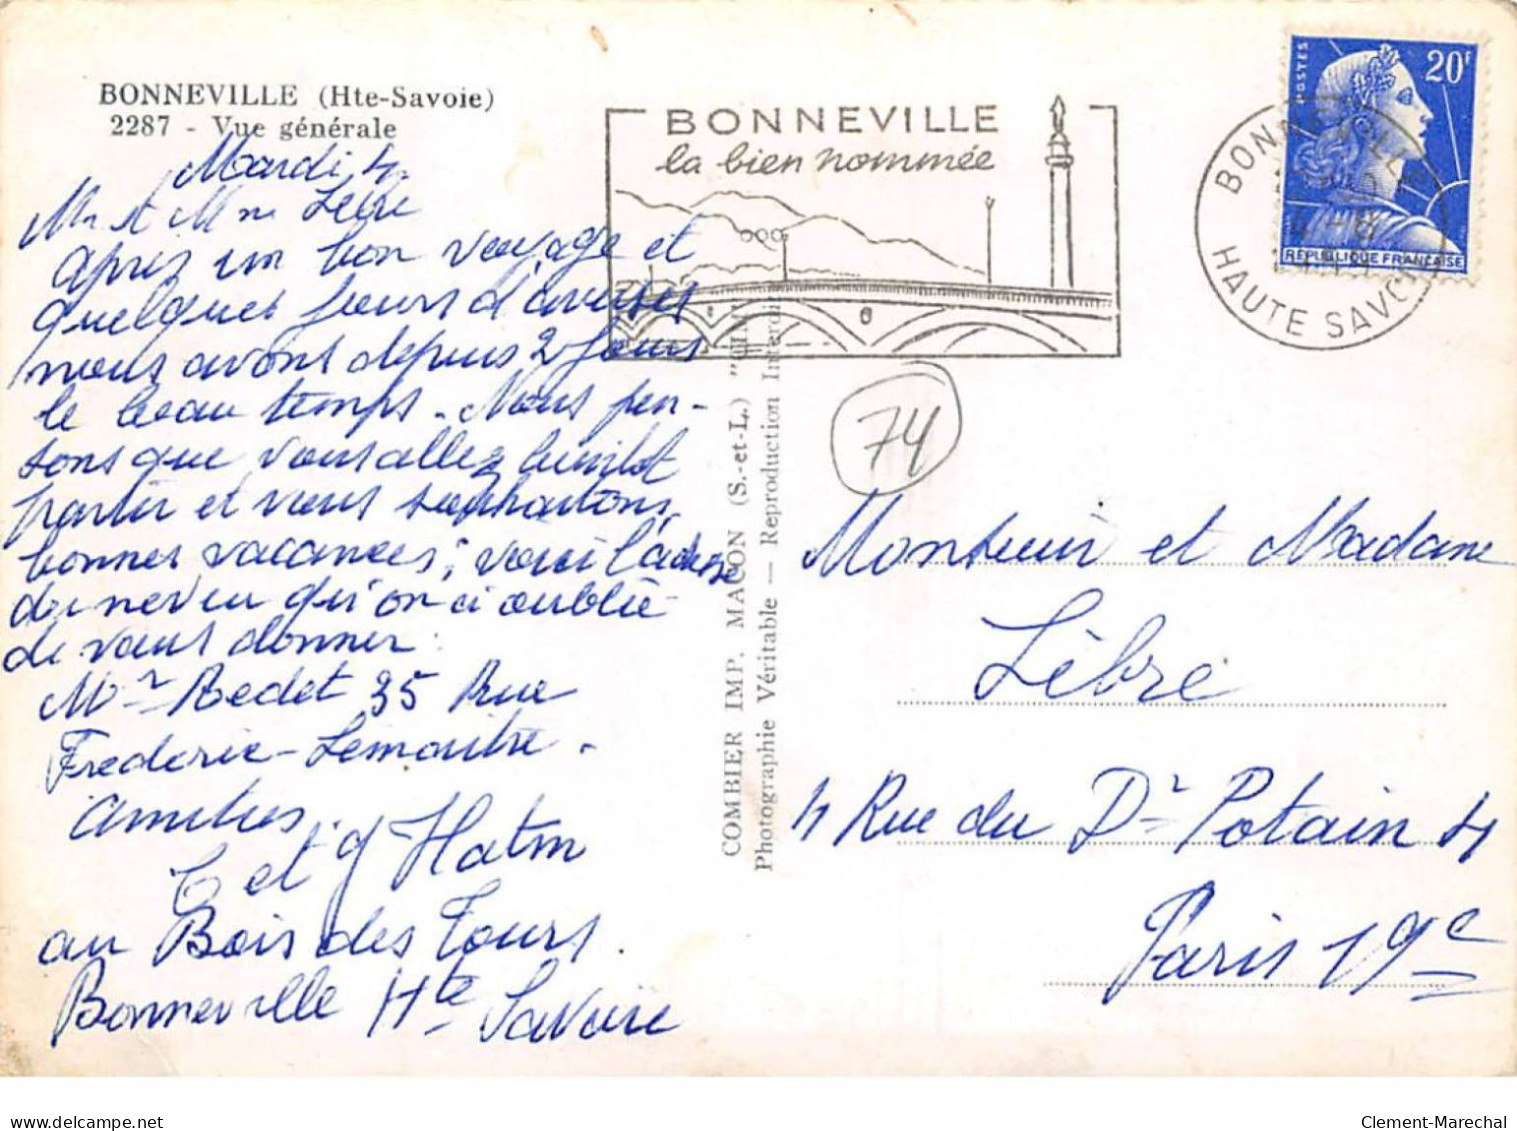 BONNEVILLE (Hte-Savoie)
2287 - Vue générale
Mardi 4.
Mr et Mme Lèbre
après un bon voyage et
quelques jours d'averses
nous avons depuis 2 jours
le beau temps. Nous pen-
sons que vous allez bientôt
partir et vous souhaitons
bonnes vacances; voici l'adresse
du neveu qu'on a oublié
de vous donner:
Mr Redet 35 Rue
Frederic-Lemaitre.
Amities.
et Hatm
au Bois des Tours.
Bonneville Hte Savoie
COMBIER IMP. MACON (S.-et-L.) "CIM"
Photographie Véritable — Reproduction Interdi
BONNEVILLE
la bien nommée
BONNEVILLE
HAUTE SAVOIE
POSTES
20F
RÉPUBLIQUE FRANÇAISE
74
Monsieur et Madame
Lèbre
4 Rue du Dr Potain 4
Paris 19e
Clement-Marechal